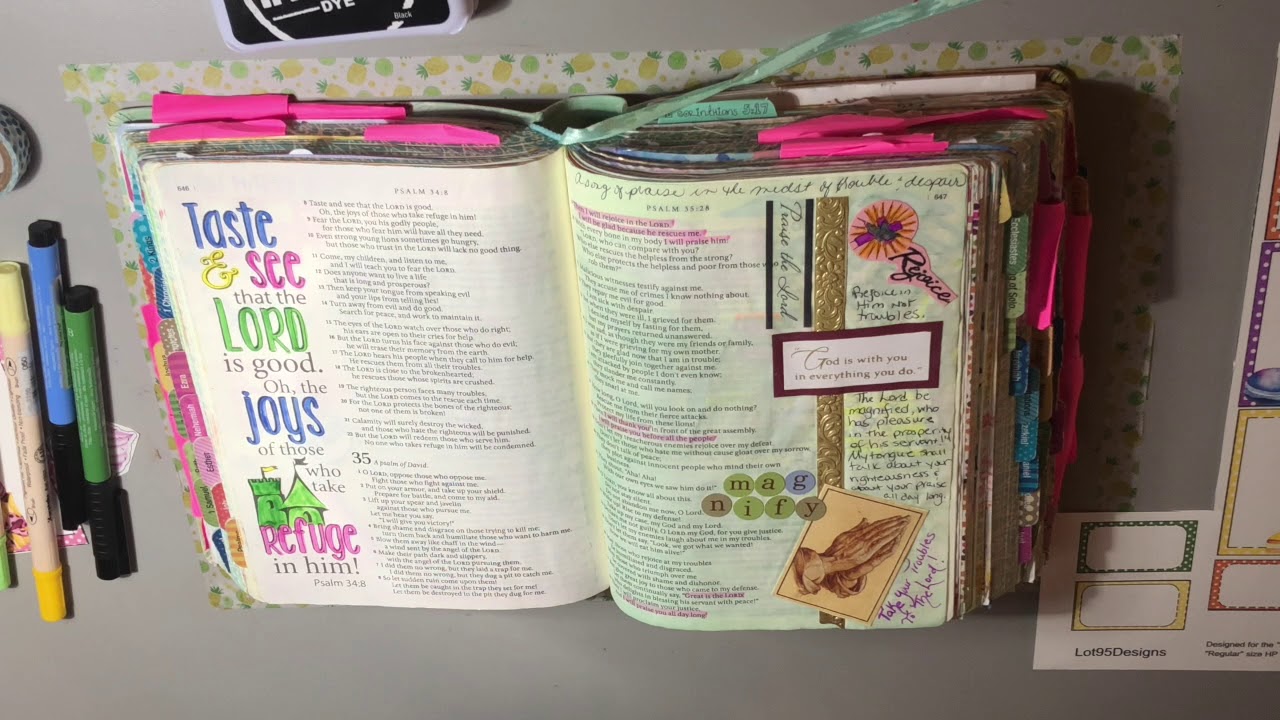 DYE
Black
Thessalonians 5:17
646
PSALM 34:8
Taste
& see
that the
LORD
is good.
Oh, the
joys
of those
who
take
Refuge
in him!
Psalm 34:8
8 Taste and see that the LORD is good.
Oh, the joys of those who take refuge in him!
9 Fear the LORD, you his godly people,
for those who fear him will have all they need.
10 Even strong young lions sometimes go hungry,
but those who trust in the LORD will lack no good thing.
11 Come, my children, and listen to me,
and I will teach you to fear the LORD.
12 Does anyone want to live a life
that is long and prosperous?
13 Then keep your tongue from speaking evil
and your lips from telling lies!
14 Turn away from evil and do good.
Search for peace, and work to maintain it.
15 The eyes of the LORD watch over those who do right;
his ears are open to their cries for help.
16 But the LORD turns his face against those who do evil;
he will erase their memory from the earth.
17 The LORD hears his people when they call to him for help.
He rescues them from all their troubles.
18 The LORD is close to the brokenhearted;
he rescues those whose spirits are crushed.
19 The righteous person faces many troubles,
but the LORD comes to the rescue each time.
20 For the LORD protects the bones of the righteous;
not one of them is broken!
21 Calamity will surely destroy the wicked,
and those who hate the righteous will be punished.
22 But the LORD will redeem those who serve him.
No one who takes refuge in him will be condemned.
35 A psalm of David.
1 O LORD, oppose those who oppose me.
Fight those who fight against me.
2 Put on your armor, and take up your shield.
Prepare for battle, and come to my aid.
3 Lift up your spear and javelin
against those who pursue me.
Let me hear you say,
"I will give you victory!"
4 Bring shame and disgrace on those trying to kill me;
turn them back and humiliate those who want to harm me.
5 Blow them away like chaff in the wind—
a wind sent by the angel of the LORD.
6 Make their path dark and slippery,
with the angel of the LORD pursuing them.
7 I did them no wrong, but they laid a trap for me.
I did them no wrong, but they dug a pit to catch me.
8 So let sudden ruin come upon them!
Let them be caught in the trap they set for me!
Let them be destroyed in the pit they dug for me.
A song of praise in the midst of trouble & despair
PSALM 35:28
647
I will rejoice in the LORD.
will be glad because he rescues me.
every bone in my body I will praise him:
LORD, who can compare with you?
else rescues the helpless from the strong?
else protects the helpless and poor from those
rob them?"
Malicious witnesses testify against me.
They accuse me of crimes I know nothing about.
repay me evil for good.
sick with despair.
when they were ill, I grieved for them.
denied myself by fasting for them,
my prayers returned unanswered.
as though they were my friends or family,
if I were grieving for my own mother.
they are glad now that I am in trouble;
they gleefully join together against me.
attacked by people I don't even know;
they slander me constantly.
mock me and call me names;
they snarl at me.
long, O LORD, will you look on and do nothing?
Rescue me from their fierce attacks.
Protect my life from these lions!
I will thank you in front of the great assembly.
I will praise you before all the people.
my treacherous enemies rejoice over my defeat.
who hate me without cause gloat over my sorrow.
talk of peace;
plot against innocent people who mind their own
"Aha! Aha!
our own eyes we saw him do it!"
you know all about this.
stay silent.
abandon me now, O Lord.
Rise to my defense!
my case, my God and my Lord.
not guilty, O LORD my God, for you give justice.
my enemies laugh about me in my troubles.
say, "Look, we got what we wanted!
eat him alive!"
who rejoice at my troubles
and disgraced.
triumph over me
with shame and dishonor.
great joy to those who came to my defense.
continually say, "Great is the LORD,
delights in blessing his servant with peace!"
proclaim your justice,
praise you all day long.
Praise the Lord
Rejoice
Rejoice in
Him Not
troubles.
"God is with you
in everything you do."
The Lord be
magnified, who
has pleasure
in the prosperity
of his servant!
My tongue shall
talk about your
righteousness &
about your praise
all day long.
mag
nify
Take your troubles
to the Lord!
Ezra
Nehemiah
Esther
Ecclesiastes
Song of Solo
Lot95Designs
Designed for the "
"Regular" size HP